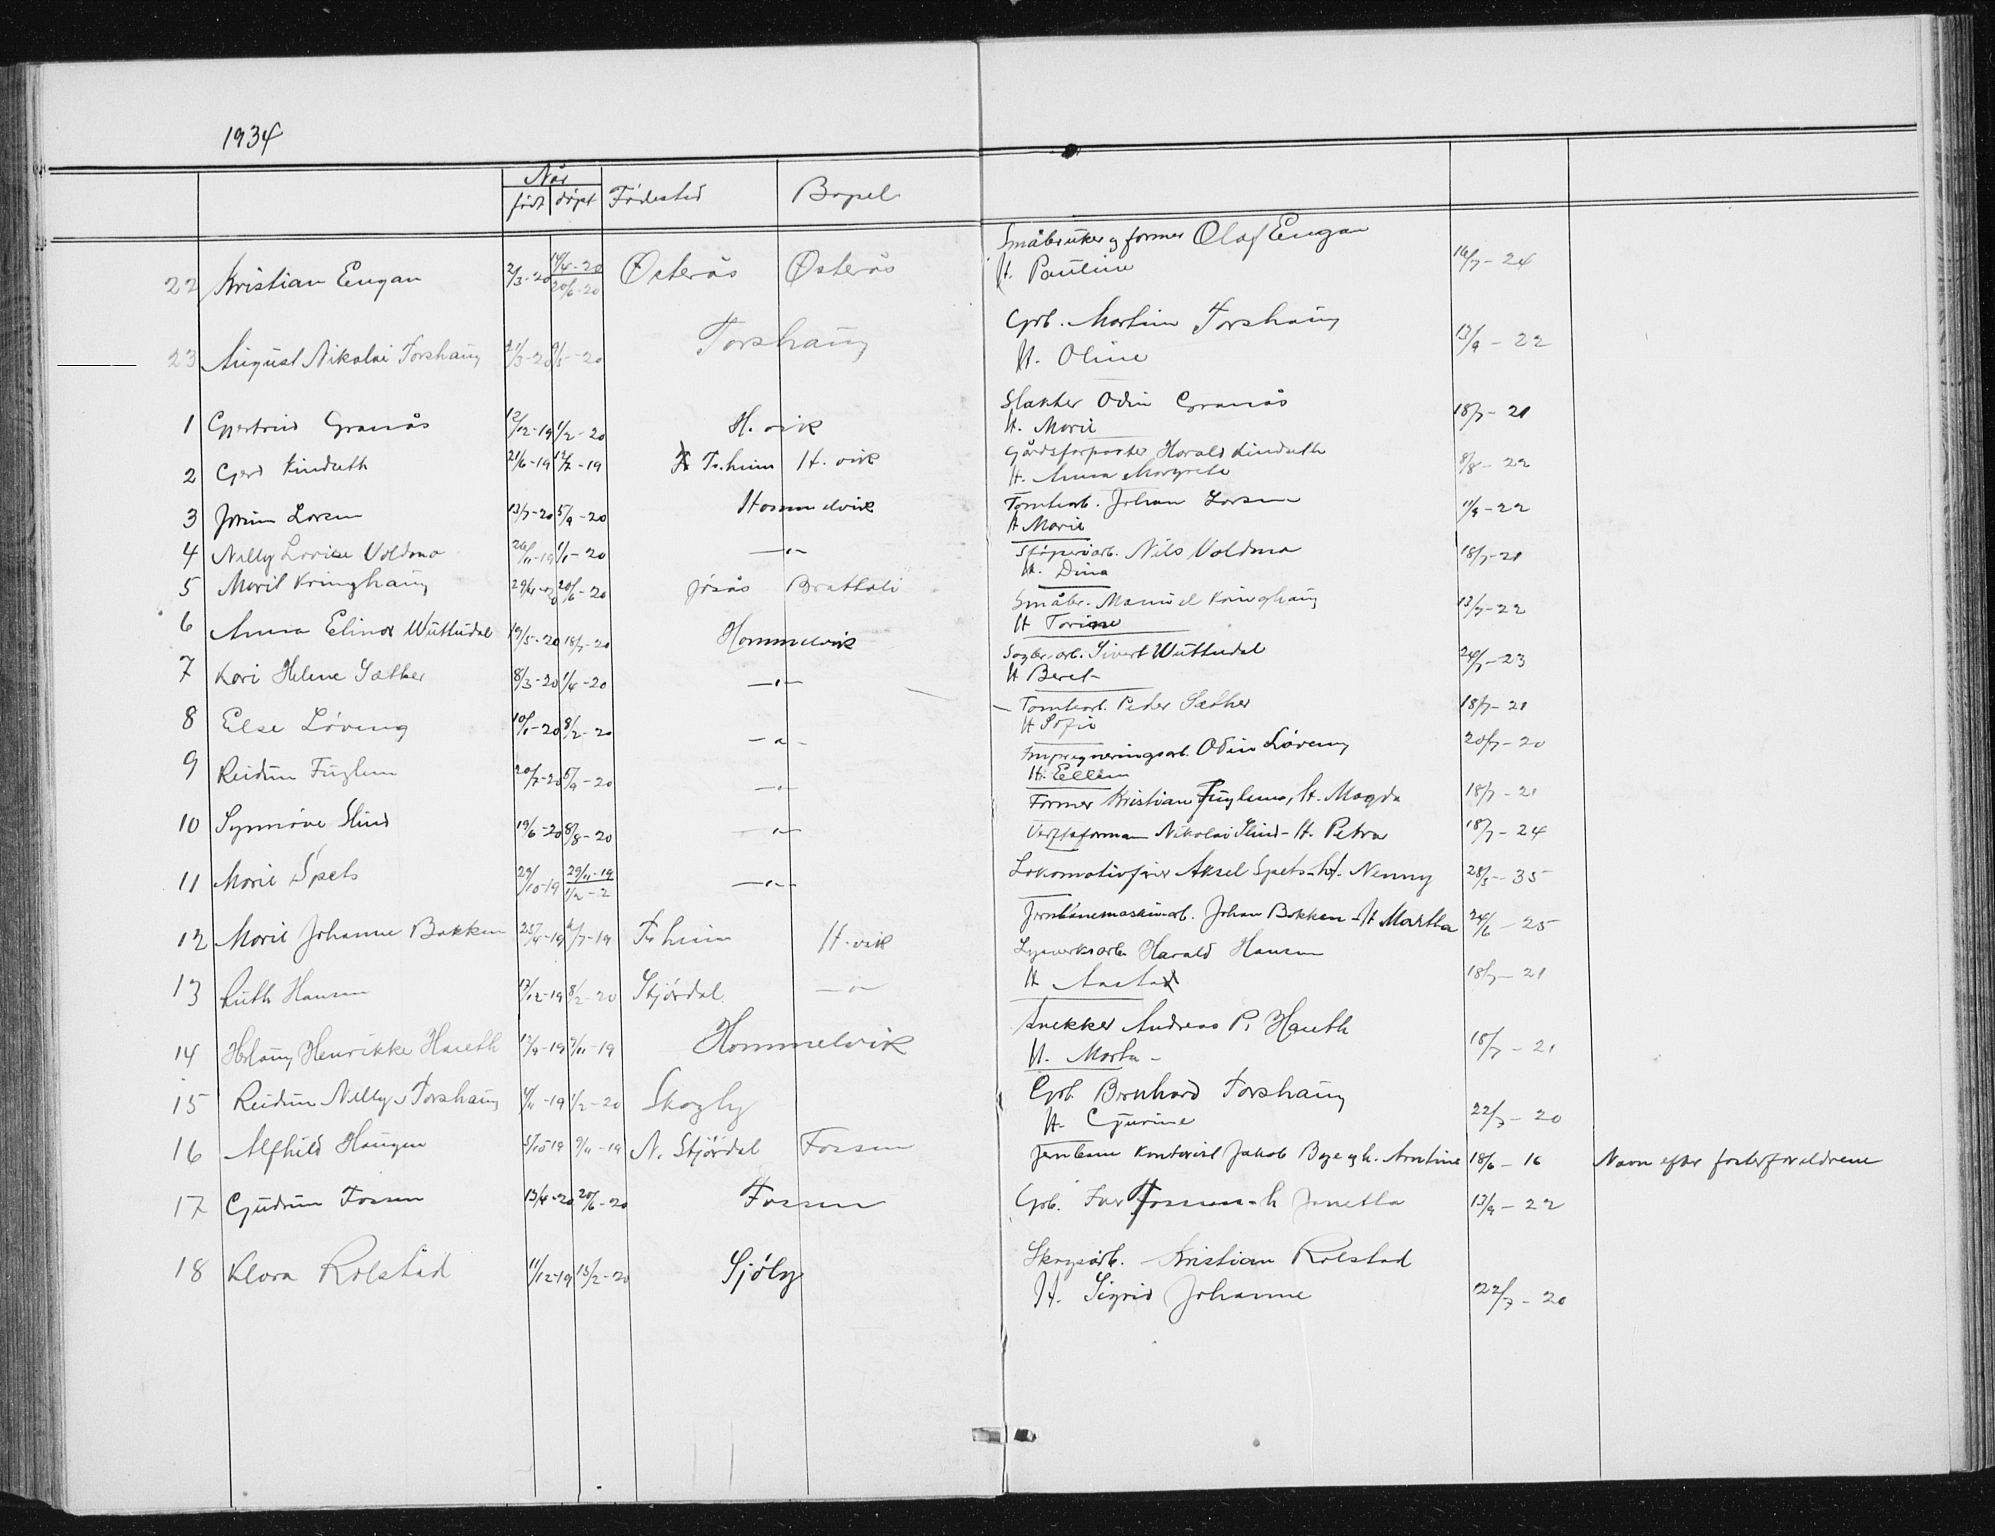 1934
Når
født døpt Fødested Bopel
22 Kristian Engan 2/3-20 14/4-20 20/6-20 Østerås Østerås Småbruker og former Olaf Engan 16/7-24
H. Pauline
23 August Nikolai Torshaug 21/3-20 9/5-20 Torshaug Grb. Martin Torshaug 13/9-22
H. Oline
1 Gjertrud Granås 12/12-19 1/2-20 H.vik Slakter Odin Granås 18/7-21
H. Marie
2 Gerd Kindseth 21/6-19 12/7-19 Tr.heim H.vik Gårdsforpakter Harald Kindseth 8/8-22
H. Anna Margrete
3 Jorun Larsen 13/7-20 5/9-20 Hommelvik Tomtearb. Johan Larsen 11/9-22
H Marie
4 Nelly Lovise Voldmo 26/11-19 1/1-20 —"— Støperiarb. Nils Voldmo 18/7-21
H. Dina
5 Marit Kringhaug 29/4-20 20/6-20 Jøsås Brattali Småbr. Manuel Kringhaug 13/7-22
H Torine
6 Anna Elinor Wuttudal 19/5-20 18/7-20 Hommelvik Sagbr.arb. Sivert Wuttudal 24/7-23
H Beret
7 Kari Helene Sæther 8/3-20 1/4-20 —"— Tomtearb. Peder Sæther 18/7-21
H Sofie
8 Else Løveng 10/1-20 8/2-20 —"— Impregneringsarb. Odin Løveng 20/7-20
H. Ellen
9 Reidun Fuglem 20/7-20 5/9-20 —"— Former Kristian Fuglem, H. Magda 18/7-21
10 Synnøve Slind 19/6-20 8/8-20 —"— Verksformann Nikolai Slind - H. Petra 18/7-24
11 Marie Spets 29/10-19 29/11-19 1/2-2 —"— Lokomotivfører Aksel Spets - H. Nenny 28/5-35
12 Marie Johanne Bakken 25/4-19 6/7-19 Tr heim H.vik Jernbanemaskinarb. Johan Bakken - H Martha 24/6-25
13 Ruth Hansen 17/12-19 8/2-20 Stjørdal —"— Lysverksarb. Harald Hansen 18/7-21
H Aasta
14 Herlaug Henrikke Haueth 17/9-19 9/11-19 Hommelvik Snekker Andreas P. Haueth 18/7-21
H. Marta -
15 Reidun Nelly Torshaug 4/11-19 1/2-20 Skogly Grb Bernhard Torshaug 22/7-20
H. Gjurine
16 Alfhild Haugen 5/10-19 9/11-19 N. Stjørdal Fossen Jernbane kontorist Jakob Bye og h. Arntine 18/6-16 Navn efter fosterforeldrene
17 Gudrun Fossen 13/4-20 20/6-20 Fossen Grb. Iver Fossen - h Janetta 13/9-22
18 Klara Rolstad 11/12-19 15/2-20 Sjøly Skogsarb. Kristian Rolstad
H. Sigrid Johanne 22/7-20